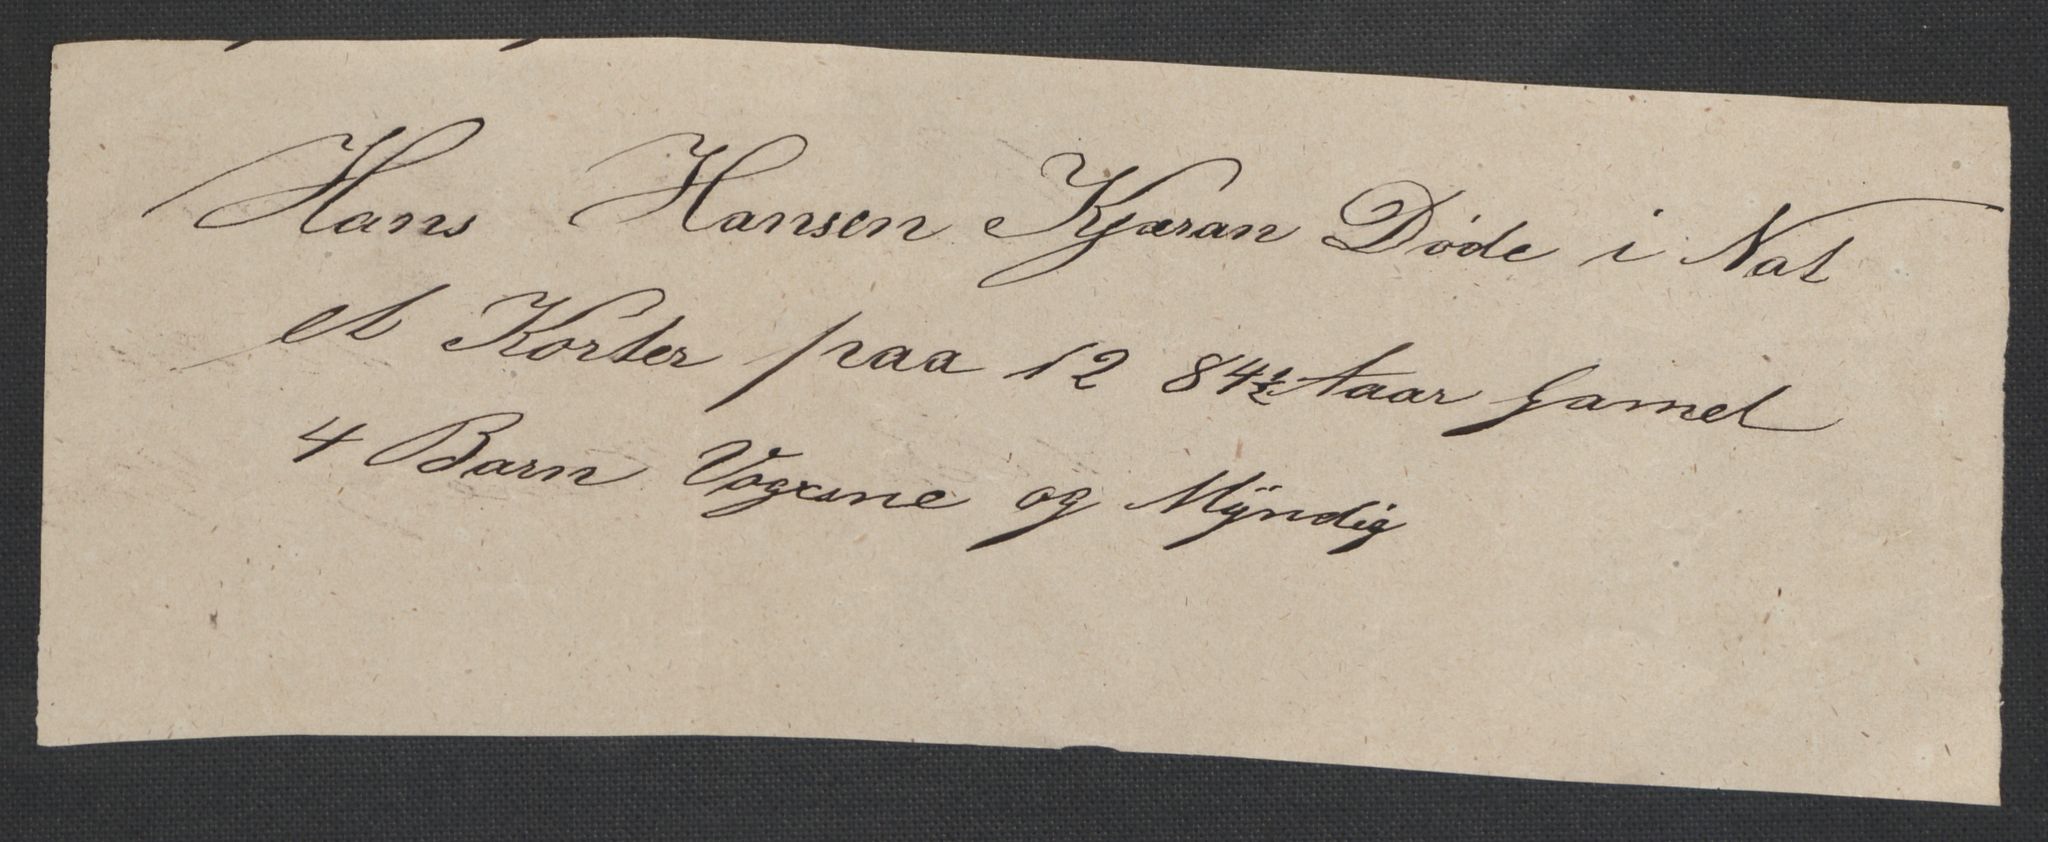 Hans Hansen Kjæran Døde i Nat
et Korter paa 12 84½ taar Gamel
4 Barn Vogxsne og Mÿndig